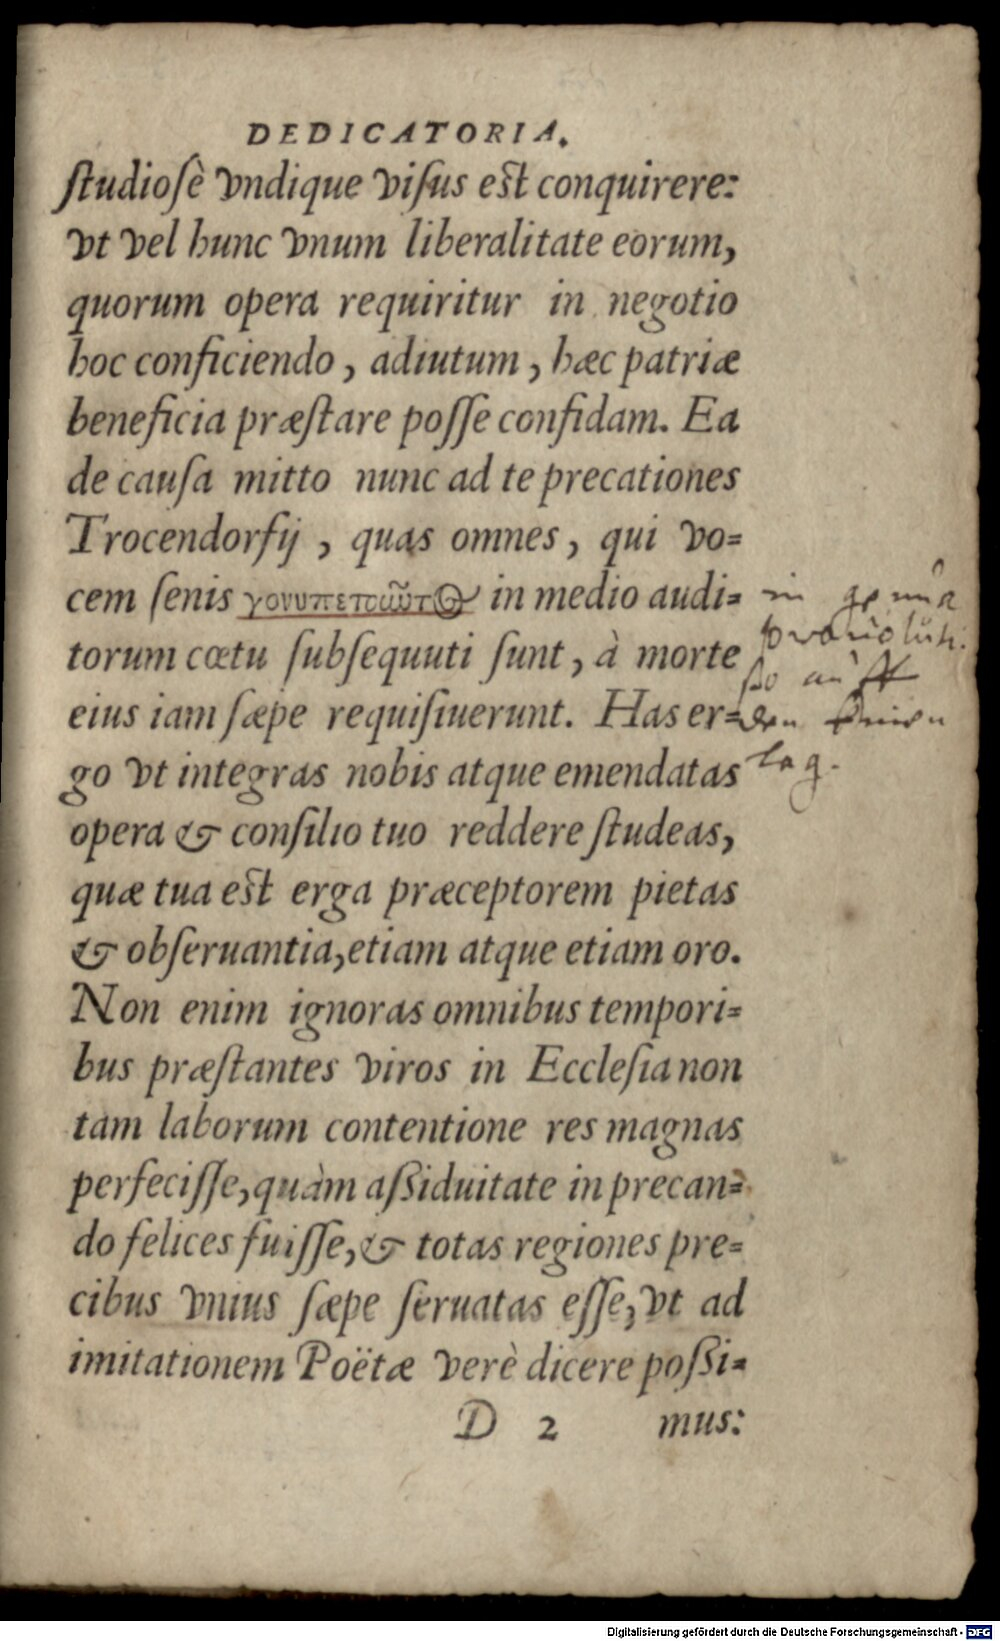 DEDICATORIA.
ſtudioſè vndique viſus eſt conquirere:
vt vel hunc vnum liberalitate eorum,
quorum opera requiritur in negotio
hoc conficiendo, adiutum, hæc patriæ
beneficia præſtare poſſe confidam. Ea
de cauſa mitto nunc ad te precationes
Trocendorfij, quas omnes, qui vo=
cem ſenis γονυπεπτῶτος in medio audi=
torum cœtu ſubſequuti ſunt, à morte
eius iam ſæpe requiſiuerunt. Has er=
go vt integras nobis atque emendatas
opera & conſilio tuo reddere ſtudeas,
quæ tua eſt erga præceptorem pietas
& obſeruantia, etiam atque etiam oro.
Non enim ignoras omnibus tempori=
bus præſtantes viros in Eccleſia non
tam laborum contentione res magnas
perfeciſſe, quàm aſſiduitate in precan=
do felices fuiſſe, & totas regiones pre=
cibus vnius ſæpe ſeruatas eſſe, vt ad
imitationem Poëtæ verè dicere poſſi=
D 2 mus:
in genua
ſo auff
den knien
lag.
Digitalisierung gefördert durch die Deutsche Forschungsgemeinschaft - DFG